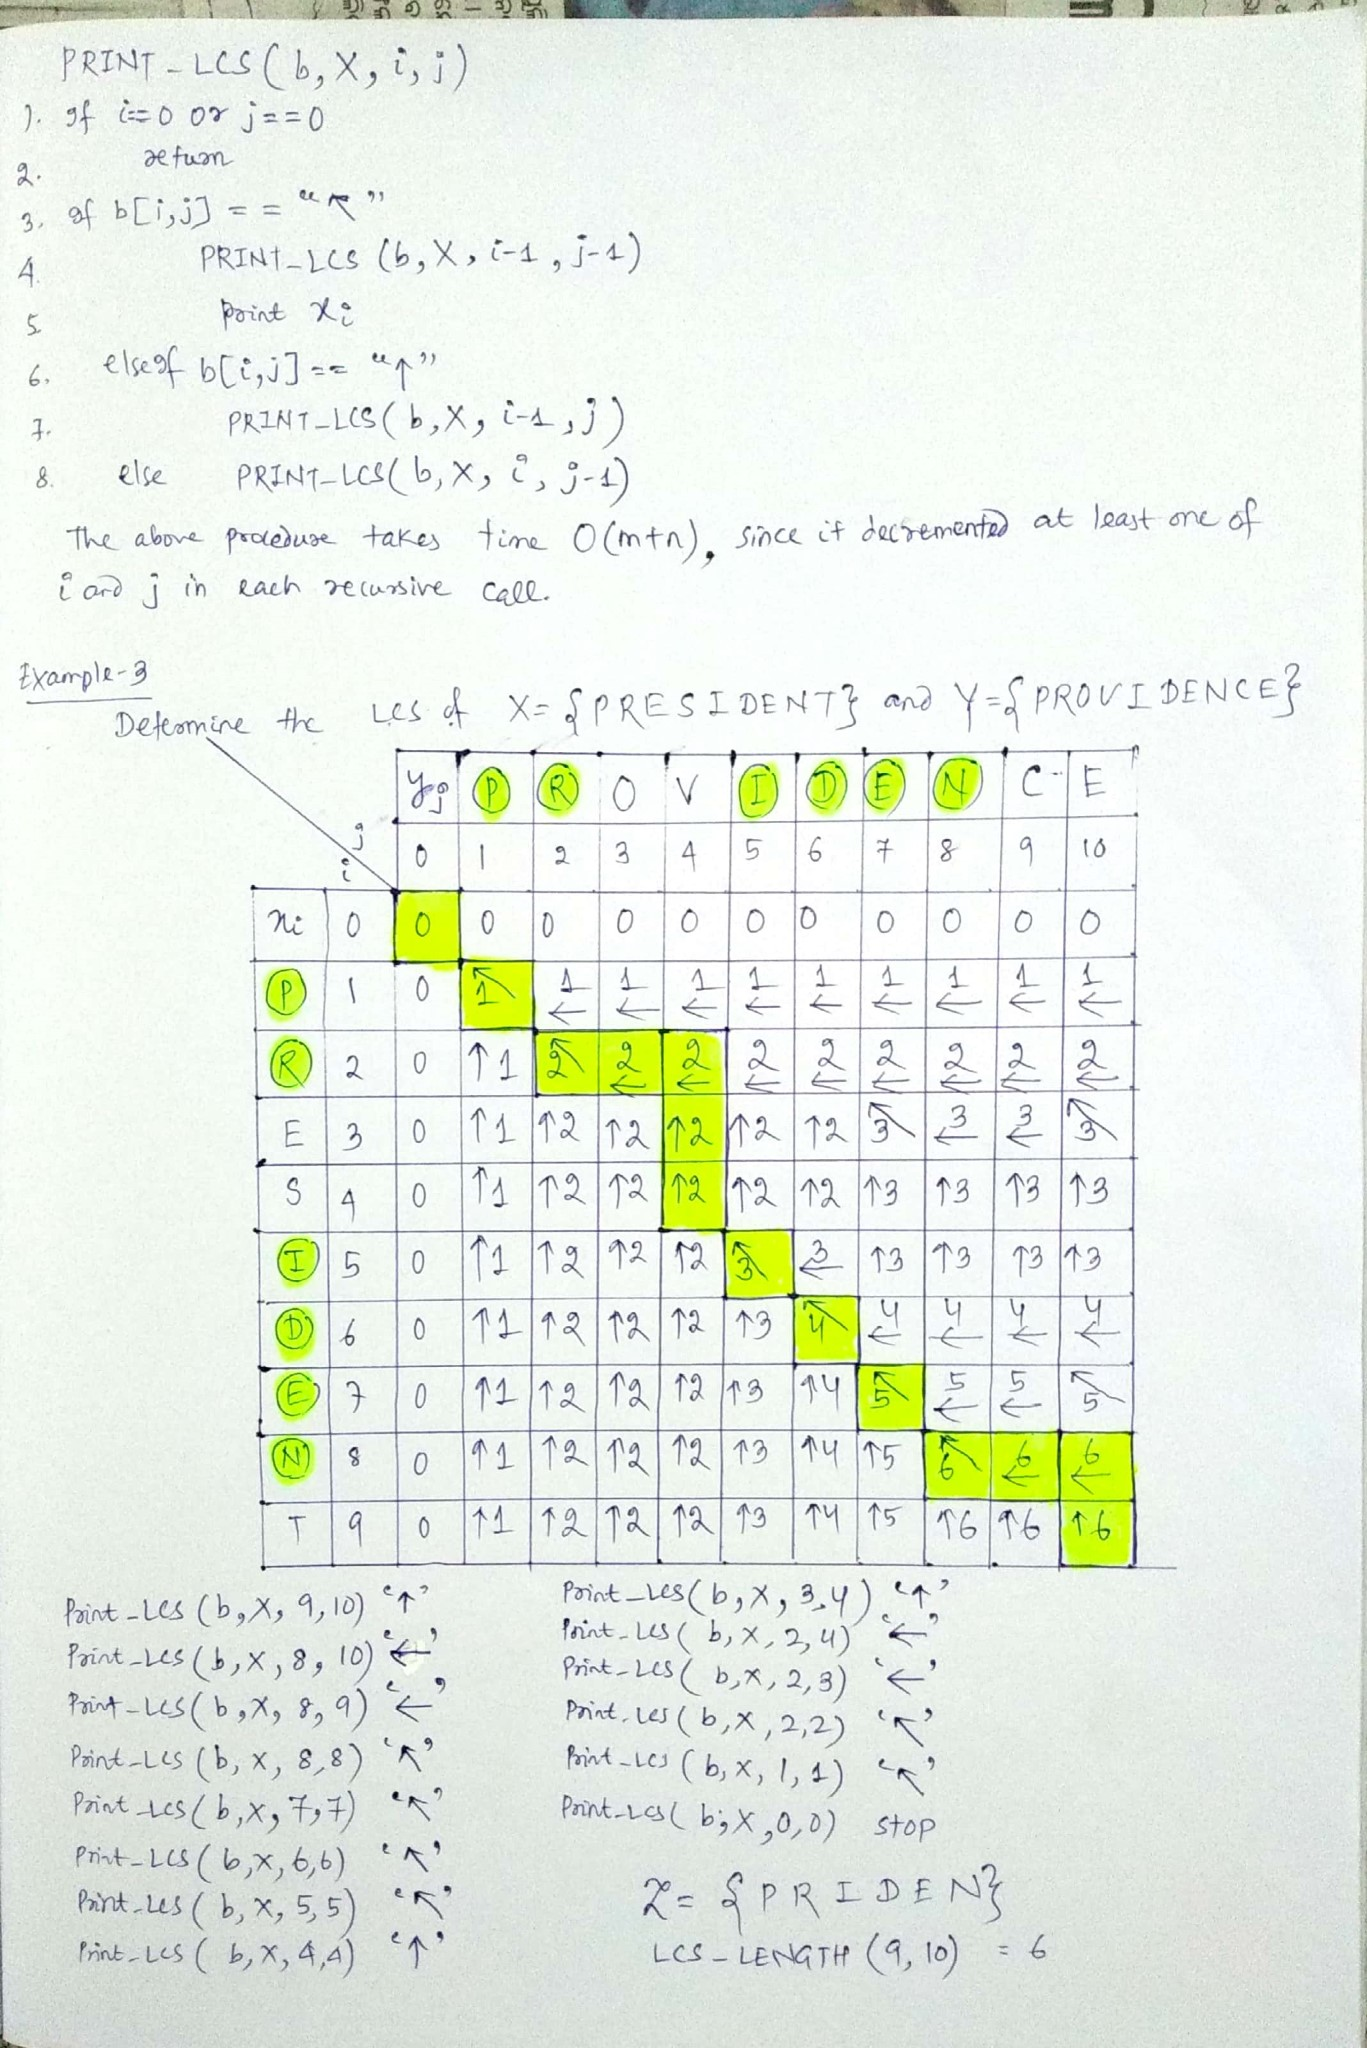 PRINT-LCS(b, X, i, j)
1. If i==0 or j==0
2. return
3. if b[i,j] == "↖"
4. PRINT-LCS (b, X, i-1, j-1)
5. print xi
6. elseif b[i,j] == "↑"
7. PRINT-LCS(b, X, i-1, j)
8. else PRINT-LCS(b, X, i, j-1)
The above procedure takes time O(m+n), since it decremented at least one of
i and j in each recursive call.
Example-3
Determine the LCS of X={PRESIDENT} and Y={PROVIDENCE}
yj P R O V I D E N C E
j
i
0 1 2 3 4 5 6 7 8 9 10
xi 0 0 0 0 0 0 0 0 0 0 0 0
P 1 0 ↖1 ←1 ←1 ←1 ←1 ←1 ←1 ←1 ←1 ←1
R 2 0 ↑1 ↖2 ←2 ←2 ←2 ←2 ←2 ←2 ←2 ←2
E 3 0 ↑1 ↑2 ↑2 ↑2 ↑2 ↑2 ↖3 ←3 ←3 ↖3
S 4 0 ↑1 ↑2 ↑2 ↑2 ↑2 ↑2 ↑3 ↑3 ↑3 ↑3
I 5 0 ↑1 ↑2 ↑2 ↑2 ↖3 ←3 ↑3 ↑3 ↑3 ↑3
D 6 0 ↑1 ↑2 ↑2 ↑2 ↑3 ↖4 ←4 ←4 ←4 ←4
E 7 0 ↑1 ↑2 ↑2 ↑2 ↑3 ↑4 ↖5 ←5 ←5 ↖5
N 8 0 ↑1 ↑2 ↑2 ↑2 ↑3 ↑4 ↑5 ↖6 ←6 ←6
T 9 0 ↑1 ↑2 ↑2 ↑2 ↑3 ↑4 ↑5 ↑6 ↑6 ↑6
Print-LCS (b, X, 9, 10) '↑'
Print-LCS (b, X, 8, 10) '←'
Print-LCS (b, X, 8, 9) '←'
Print-LCS (b, X, 8,8) '↖'
Print-LCS (b, X, 7,7) '↖'
Print-LCS (b, X, 6,6) '↖'
Print-LCS (b, X, 5,5) '↖'
Print-LCS (b, X, 4,4) '↑'
Print-LCS (b, X, 3,4) '↑'
Print-LCS (b, X, 2,4) '←'
Print-LCS (b, X, 2,3) '←'
Print-LCS (b, X, 2,2) '↖'
Print-LCS (b, X, 1,1) '↖'
Print-LCS (b, X, 0,0) stop
Z = {PRIDEN}
LCS-LENGTH (9, 10) = 6